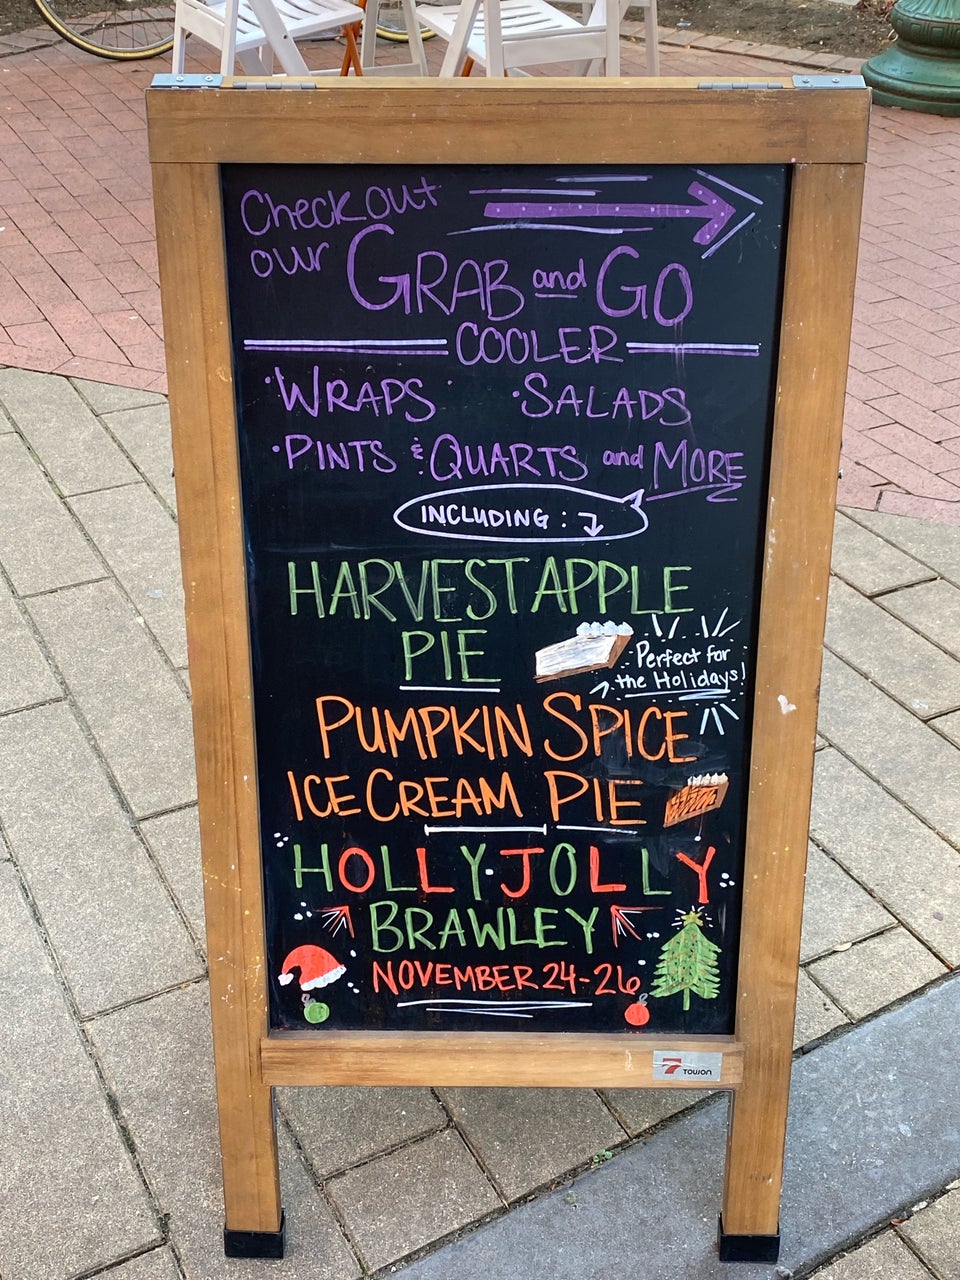 Check out
our GRAB and GO
COOLER
• WRAPS • SALADS
• PINTS & QUARTS and MORE
INCLUDING:
HARVEST APPLE
PIE
Perfect for
the Holidays!
PUMPKIN SPICE
ICE CREAM PIE
HOLLY JOLLY
BRAWLEY
NOVEMBER 24-26
TOWON